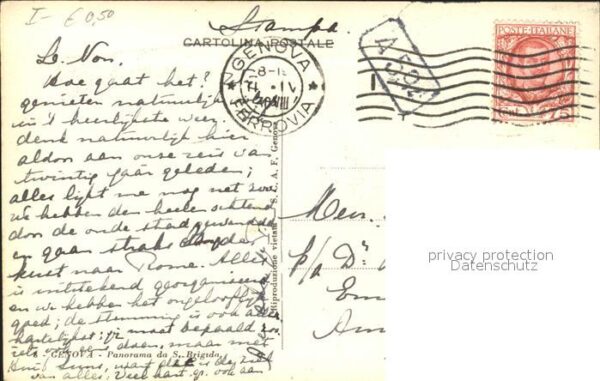 I - € 0,50
Stampa
CARTOLINA POSTALE
GENOVA
FERROVIA
POSTE ITALIANE
75
Hoe gaat het?
genieten natuurlijk
in 't heerlijkste weer.
denk natuurlijk hier
aldoor aan onze reis van
twintig jaar geleden;
alles lijkt me nog net zoo
we hebben den heelen ochtend
door de oude stad gewandeld
en gaan straks
kust naar Rome. Alles
is uitstekend georganiseerd
en we hebben het ongelooflijk
goed; de stemming is ook
hartelijkst: jij moet bepaald
iets ook eens doen, maar met
GENOVA - Panorama da S. Brigida
want dat is de ziel
van alles; Veel hart. gr. ook aan
Riproduzione vietata - S. C. A. F. Genova
Mevr.
p/a Dr.
Am
privacy protection
Datenschutz